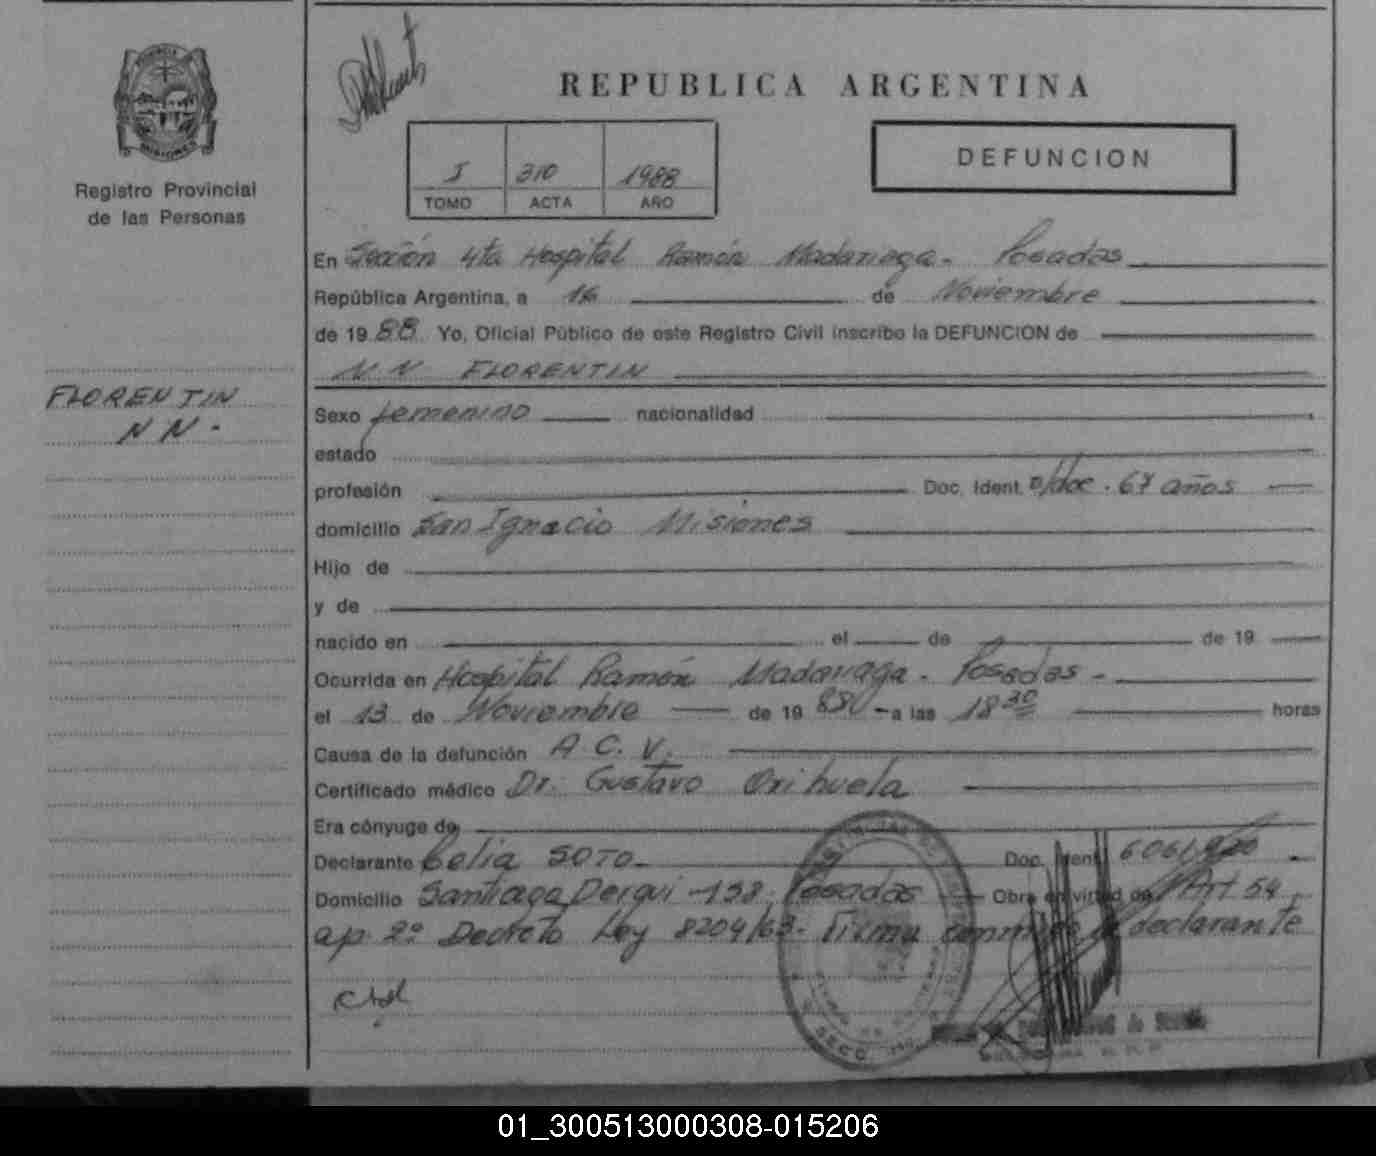 REPUBLICA ARGENTINA
DEFUNCION
I 310 1988
TOMO ACTA AÑO
MISIONES
Registro Provincial
de las Personas
FLORENTIN
NN -
En Sección 4ta Hospital Ramón Madariaga - Posadas
República Argentina, a 16 de Noviembre
de 1988 Yo, Oficial Público de este Registro Civil inscribo la DEFUNCION de
NN FLORENTIN
Sexo femenino nacionalidad
estado
profesión Doc. Ident. s/doc. 67 años
domicilio San Ignacio Misiones
Hijo de
y de
nacido en el de de 19
Ocurrida en Hospital Ramón Madariaga - Posadas -
el 13 de Noviembre de 19 88 a las 18 30 horas
Causa de la defunción A. C. V.
Certificado médico Dr. Gustavo Orihuela
Era cónyuge de
Declarante Celia SOTO - Doc. Ident.
Domicilio Santiago Derqui - 158 - Posadas Obra en virtud de Art 54
ap 2º Decreto Ley 8204/63 - Firma conmigo la declarante
01_300513000308-015206